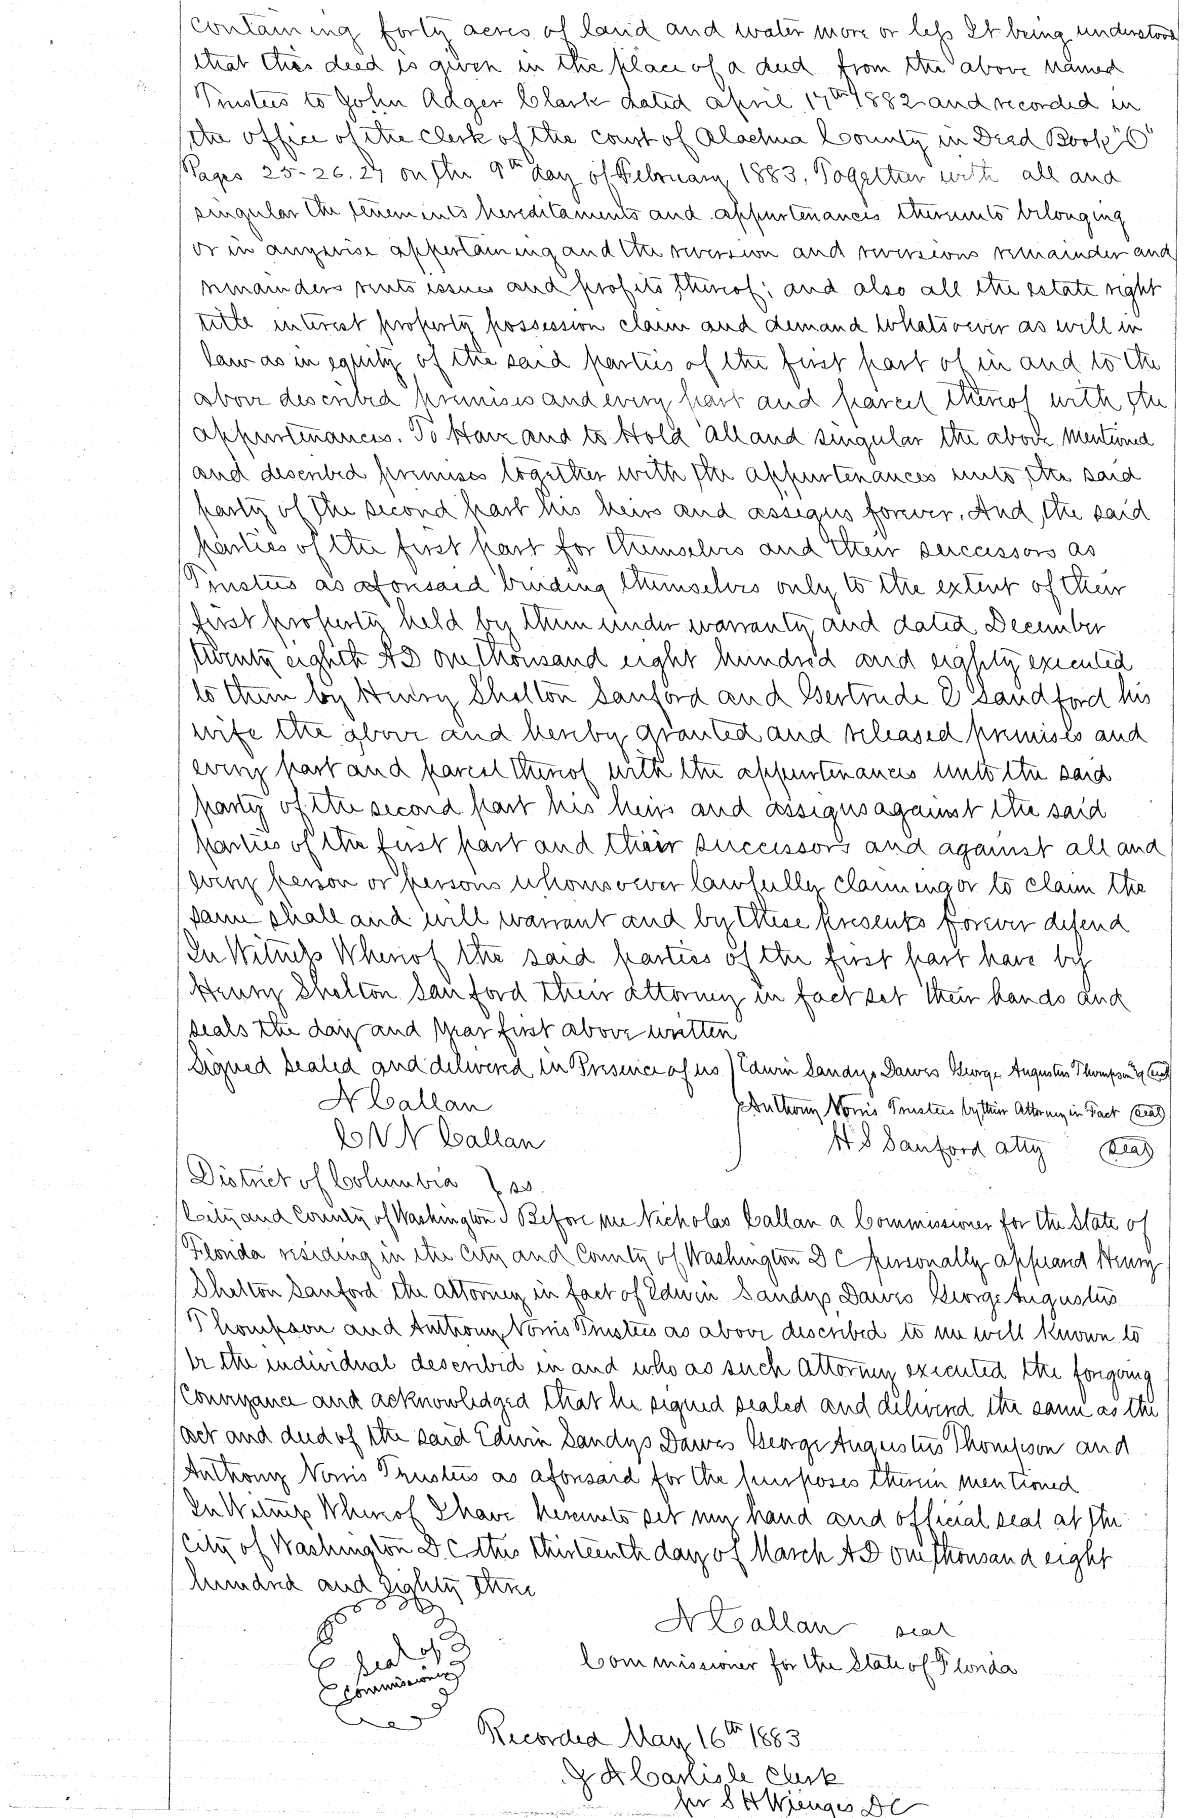 containing forty acres of land and water more or less It being understood
that this deed is given in the place of a deed from the above named
Trustees to John Adger Clark dated april 17th 1882 and recorded in
the office of the clerk of the court of Alachua County in Deed Book "O"
Pages 25-26.27 on the 9th day of February 1883. Together with all and
singular the tenements hereditaments and appurtenances thereunto belonging
or in anywise appertaining and the reversion and reversions remainder and
remainders rents issues and profits thereof; and also all the estate right
title interest property possession claim and demand whatsoever as well in
law as in equity of the said parties of the first part of in and to the
above described premises and every part and parcel thereof with the
appurtenances. To Have and to Hold all and singular the above mentioned
and described premises together with the appurtenances unto the said
party of the second part his heirs and assigns forever. And the said
parties of the first part for themselves and their successors as
Trustees as aforesaid binding themselves only to the extent of their
first property held by them under warranty and dated December
twenty eighth AD one thousand eight hundred and eighty executed
to them by Henry Shelton Sanford and Gertrude E Sandford his
wife the above and hereby granted and released premises and
every part and parcel thereof with the appurtenances unto the said
party of the second part his heirs and assigns against the said
parties of the first part and their successors and against all and
every person or persons whomsoever lawfully claiming or to claim the
same shall and will warrant and by these presents forever defend
In Witness Whereof the said parties of the first part have by
Henry Shelton Sanford their attorney in fact set their hands and
seals the day and year first above written
Signed sealed and delivered in Presence of us } Edwin Sandys Dawes George Augustus Thompson & seal
N Callan } Anthony Norris Trustees by their Attorney in Fact seal
C V N Callan H S Sanford atty seal
District of Columbia } ss
City and County of Washington } Before me Nicholas Callan a Commissioner for the State of
Florida residing in the City and County of Washington D C personally appeard Henry
Shelton Sanford the Attorney in fact of Edwin Sandys Dawes George Augustus
Thompson and Anthony Norris Trustees as above described to me well known to
be the individual described in and who as such Attorney executed the foregoing
Conveyance and acknowledged that he signed sealed and delivered the same as the
act and deed of the said Edwin Sandys Dawes George Augustus Thompson and
Anthony Norris Trustees as aforesaid for the purposes therein mentioned
In Witness Whereof I have hereunto set my hand and official seal at the
City of Washington D.C. this thirteenth day of March AD one thousand eight
hundred and Eighty three
N Callan seal
Seal of
Commissioner
Commissioner for the State of Florida
Recorded May 16th 1883
J A Carlisle Clerk
per S H Wienges DC